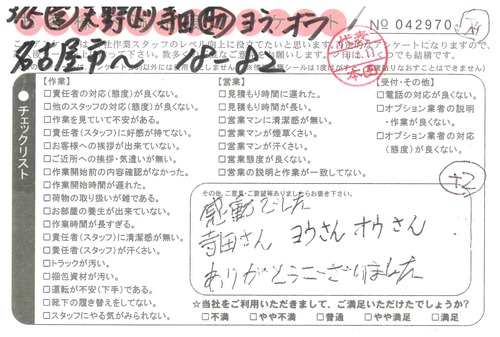 3/5 大野 寺田 ヨウ、オウ
No 042970
名古屋市へ 18.82
代表
11
本田
チェックリスト
【作業】
□責任者の対応(態度)が良くない。
□他のスタッフの対応(態度)が良くない。
□作業を見ていて不安がある。
□責任者(スタッフ)に好感が持てない。
□お客様への挨拶が出来ていない。
□ご近所への挨拶・気遣いが無い。
□作業開始前の内容確認がなかった。
□作業開始時間が遅れた。
□荷物の取り扱いが雑である。
□お部屋の養生が出来ていない。
□作業時間が長すぎる。
□責任者(スタッフ)に清潔感が無い。
□責任者(スタッフ)が汗くさい。
□トラックが汚い。
□梱包資材が汚い。
□運転が不安(下手)である。
□靴下の履き替えをしてない。
□スタッフにやる気がみられない。
【営業】
□見積もり時間に遅れた。
□見積もり時間が長い。
□営業マンに清潔感が無い。
□営業マンが煙草くさい。
□営業マンが汗くさい。
□営業態度が良くない。
□営業の説明と作業が一致してない。
【受付・その他】
□電話の対応が良くない。
□オプション業者の説明・作業が良くない。
□オプション業者の対応(態度)が良くない。
+2
その他、ご意見・ご要望等ありましたらお書き下さい。
感動でした
寺田さん ヨウさん オウさん
ありがとうございました
☆当社をご利用いただきまして、ご満足いただけたでしょうか?
□不満 □やや不満 □普通 □やや満足 □満足